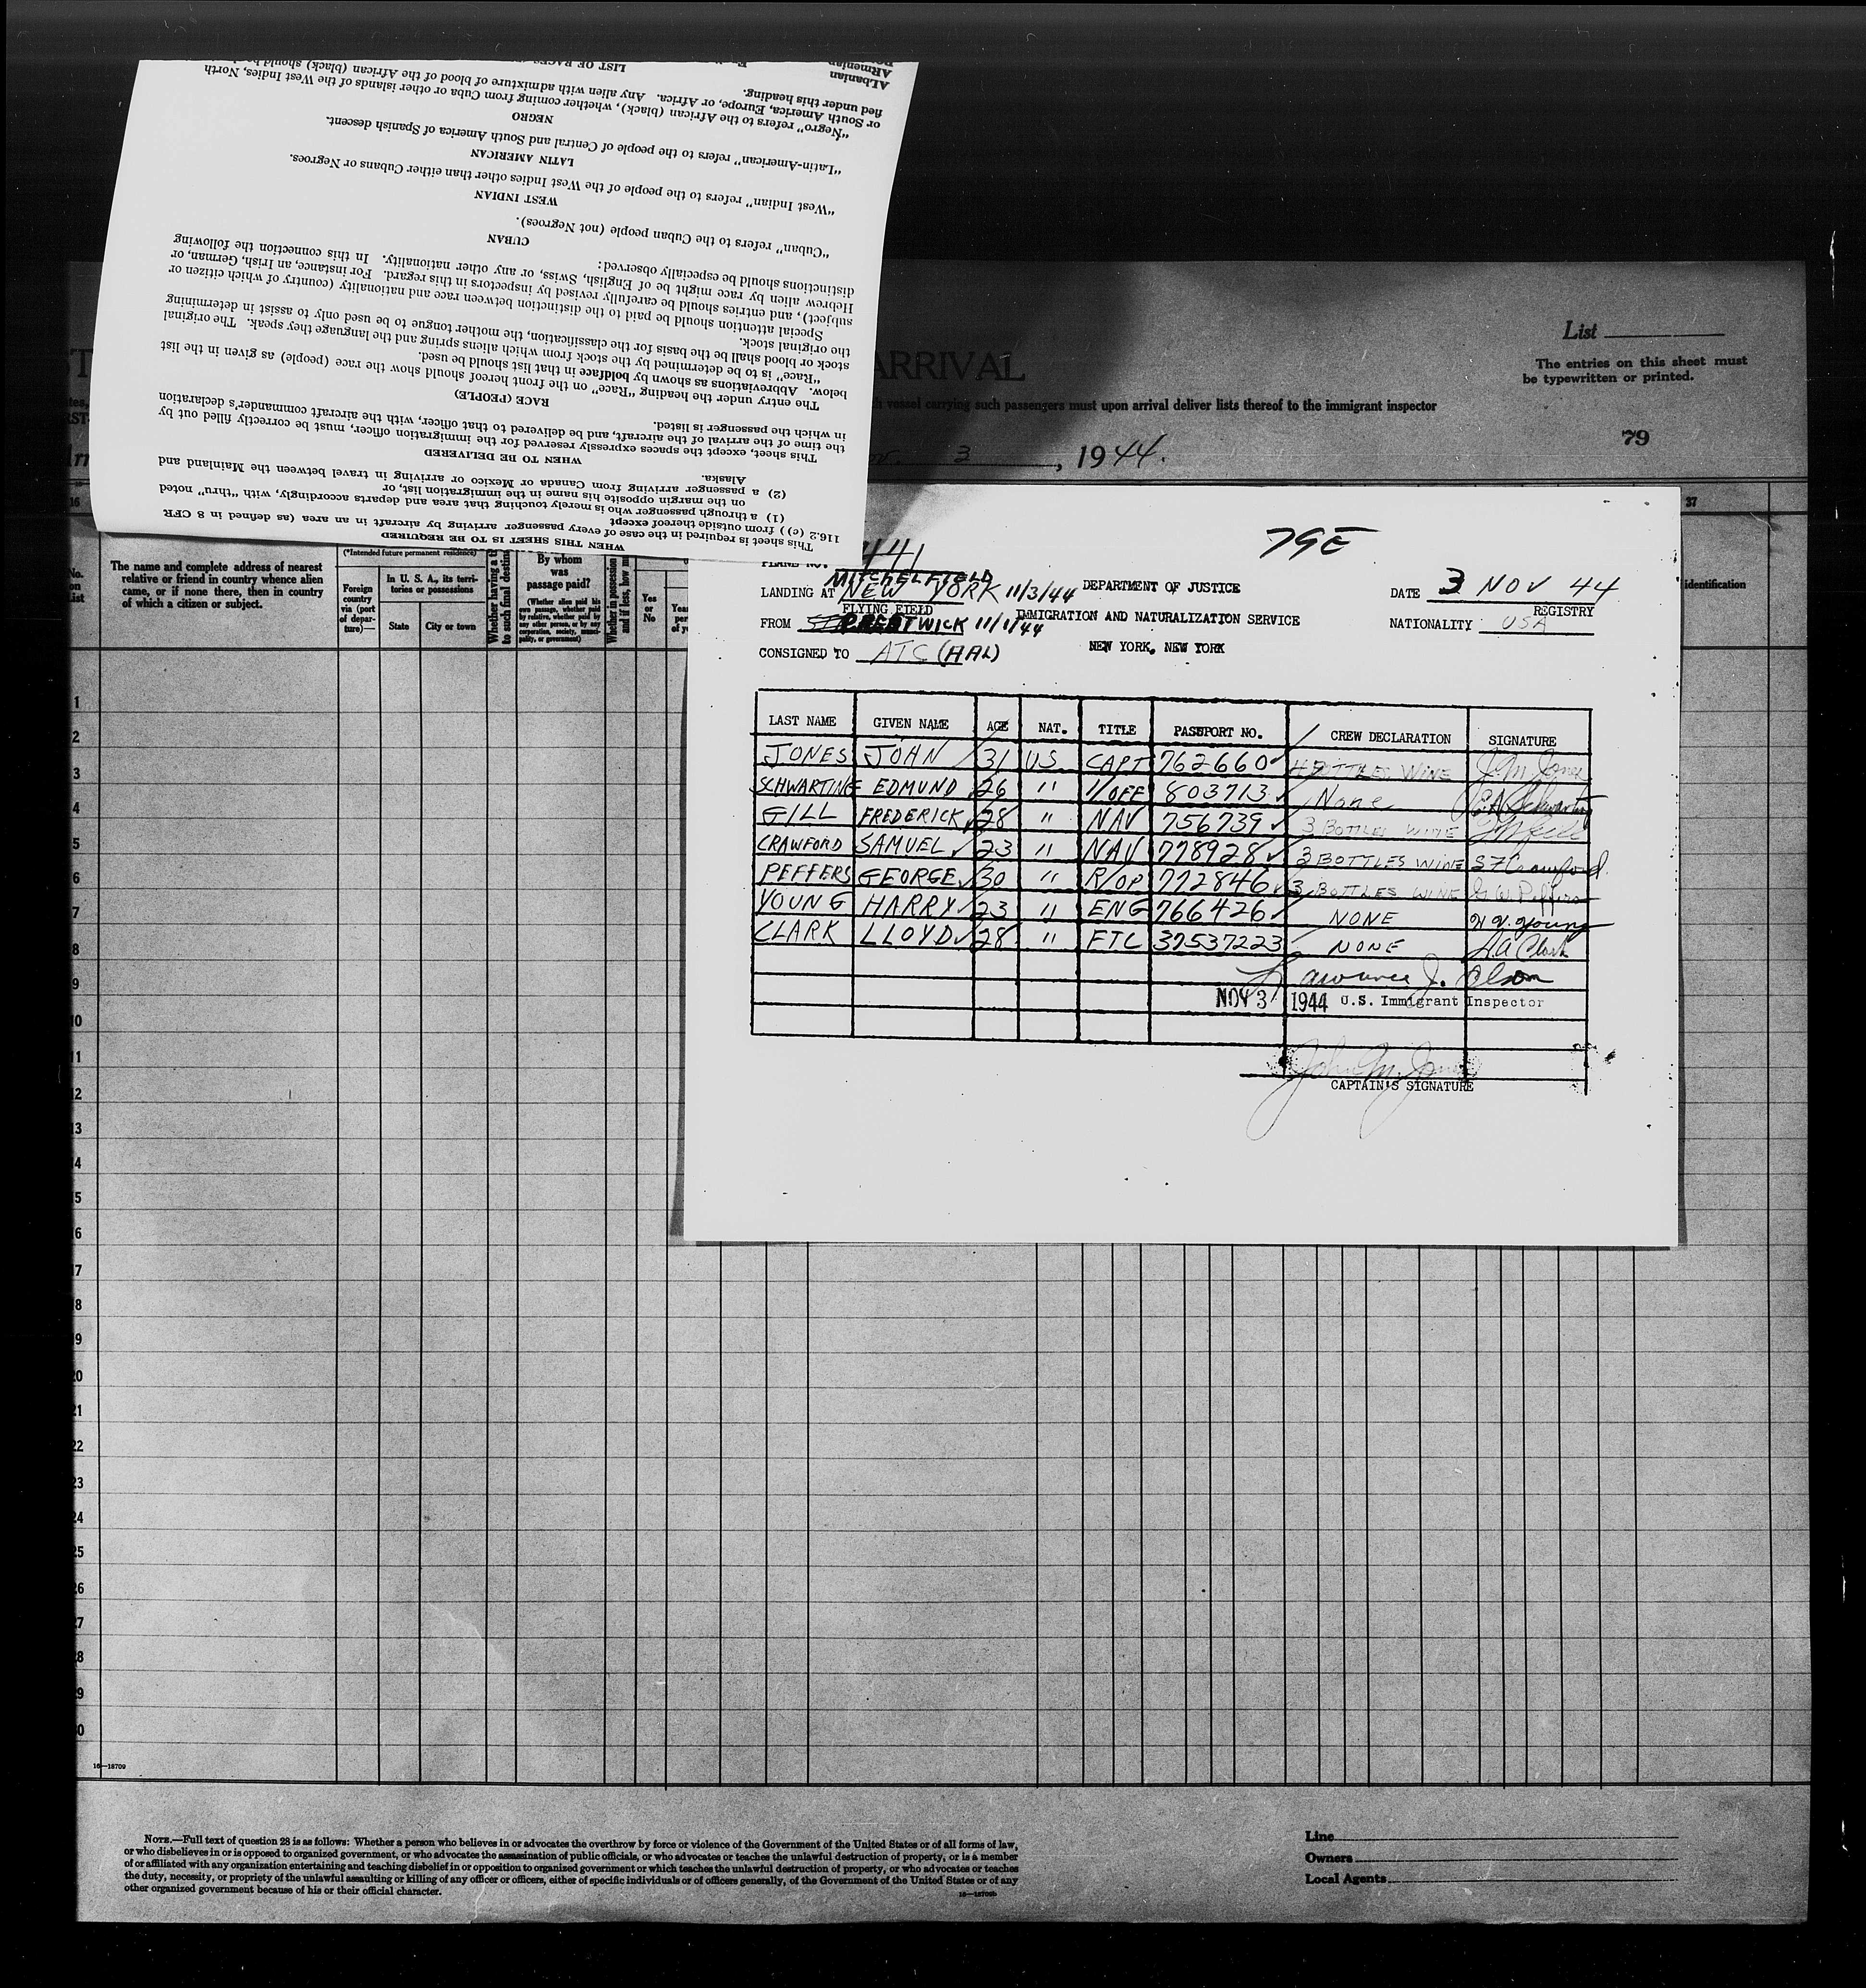 List
The entries on this sheet must
be typewritten or printed.
ARRIVAL
vessel carrying such passengers must upon arrival deliver lists thereof to the immigrant inspector
79
3, 1944.
LIST OF RACES
ALbanian
ARmenian
"Negro" refers to the African (black), whether coming from Cuba or other islands of the West Indies, North
or South America, Europe, or Africa. Any alien with admixture of blood of the African (black) should be
fied under this heading.
NEGRO
"Latin-American" refers to the people of Central and South America of Spanish descent.
LATIN AMERICAN
"West Indian" refers to the people of the West Indies other than either Cubans or Negroes.
WEST INDIAN
"Cuban" refers to the Cuban people (not Negroes).
CUBAN
Special attention should be paid to the distinction between race and nationality (country of which citizen or
subject), and entries should be carefully revised by inspectors in this regard. For instance, an Irish, German, or
Hebrew alien by race might be of English, Swiss, or any other nationality. In this connection the following
distinctions should be especially observed:
"Race" is to be determined by the stock from which aliens spring and the language they speak. The original
stock or blood shall be the basis for the classification, the mother tongue to be used only to assist in determining
the original stock.
The entry under the heading "Race" on the front hereof should show the race (people) as given in the list
below. Abbreviations as shown by boldface in that list should be used.
RACE (PEOPLE)
This sheet, except the spaces expressly reserved for the immigration officer, must be correctly filled out by
the time of the arrival of the aircraft, and be delivered to that officer, with the aircraft commander's declaration
in which the passenger is listed.
WHEN TO BE DELIVERED
(2) a passenger arriving from Canada or Mexico or arriving in travel between the Mainland and
Alaska.
(1) a through passenger who is merely touching that area and departs accordingly, with "thru" noted
on the margin opposite his name in the immigration list, or
This sheet is required in the case of every passenger arriving by aircraft in an area (as defined in 8 CFR
116.2 (c)) from outside thereof except
WHEN THIS SHEET IS TO BE REQUIRED
16
37
No.
on
List
The name and complete address of nearest
relative or friend in country whence alien
came, or if none there, then in country
of which a citizen or subject.
(*Intended future permanent residence)
Foreign
country
via (port
of depar-
ture)—
In U. S. A., its terri-
tories or possessions
State
City or town
Whether having a ti
to such final destin
By whom
was
passage paid?
(Whether alien paid his
own passage, whether paid
by relative, whether paid by
any other person, or by any
corporation, society, munici-
pality, or government)
Whether in possession
and if less, how m
Yes
or
No
identification
79E
441
MITCHEL FIELD
LANDING AT NEW YORK 11/3/44 DEPARTMENT OF JUSTICE DATE 3 NOV 44
FLYING FIELD REGISTRY
FROM PRESTWICK 11/1/44 IMMIGRATION AND NATURALIZATION SERVICE NATIONALITY USA
CONSIGNED TO ATC (AAL) NEW YORK, NEW YORK
LAST NAME GIVEN NAME AGE NAT. TITLE PASSPORT NO. CREW DECLARATION SIGNATURE
JONES JOHN 31 US CAPT 762660 4 BOTTLES WINE J. M. Jones
SCHWARTING EDMUND 26 " 1/OFF 803713 None E A Schwarting
GILL FREDERICK 28 " NAV 756739 3 BOTTLES WINE
CRAWFORD SAMUEL 23 " NAV 778928 3 BOTTLES WINE S F Crawford
PEFFERS GEORGE 30 " R/OP 772846 3 BOTTLES WINE G W Peffers
YOUNG HARRY 23 " ENG 766426 NONE H. V. Young
CLARK LLOYD 28 " FTC 37537223 NONE L A Clark
Lawrence J. Olson
NOV 3 1944 U.S. Immigrant Inspector
John M. Jones
CAPTAIN'S SIGNATURE
1
2
3
4
5
6
7
8
9
10
11
12
13
14
15
16
17
18
19
20
21
22
23
24
25
26
27
28
29
30
16—18709
NOTE.—Full text of question 28 is as follows: Whether a person who believes in or advocates the overthrow by force or violence of the Government of the United States or of all forms of law,
or who disbelieves in or is opposed to organized government, or who advocates the assassination of public officials, or who advocates or teaches the unlawful destruction of property, or is a member
of or affiliated with any organization entertaining and teaching disbelief in or opposition to organized government or which teaches the unlawful destruction of property, or who advocates or teaches
the duty, necessity, or propriety of the unlawful assaulting or killing of any officer or officers, either of specific individuals or of officers generally, of the Government of the United States or of any
other organized government because of his or their official character.
16—18709b
Line
Owners
Local Agents